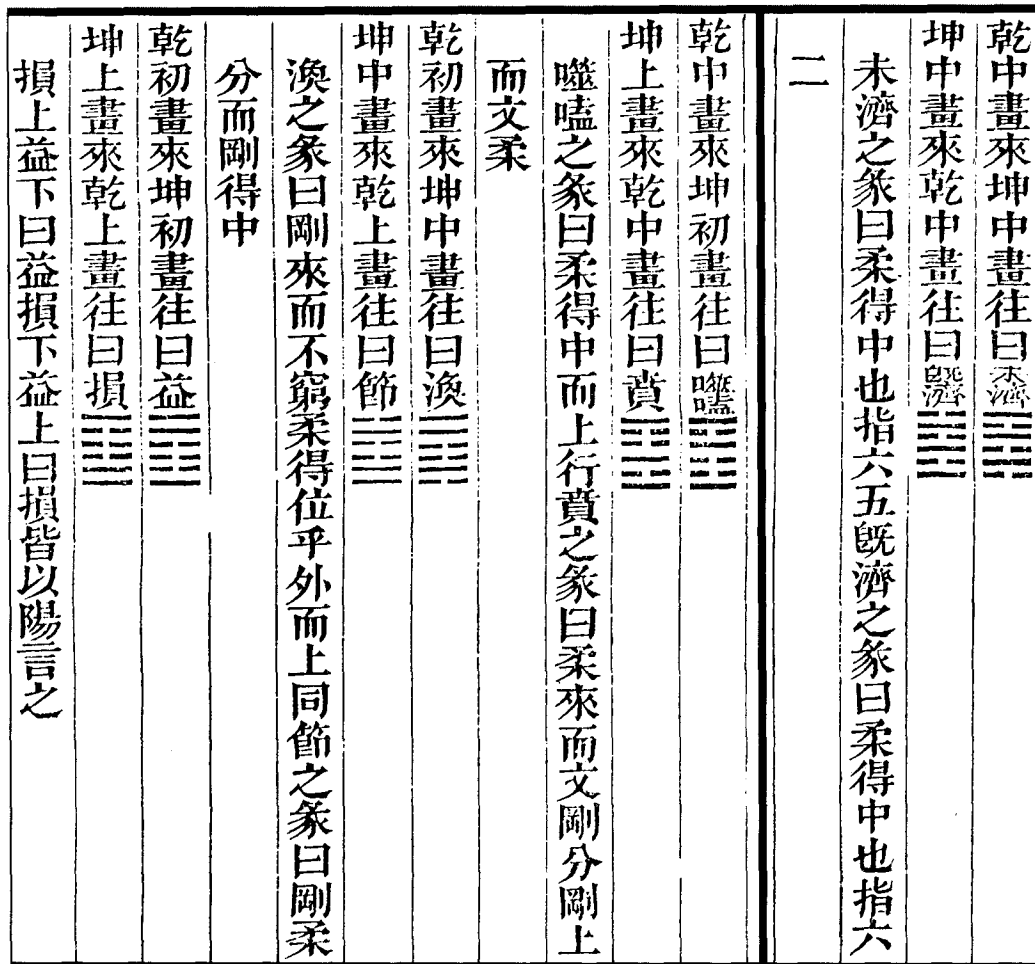 乾中畫來坤中畫往曰未濟䷿
坤中畫來乾中畫往曰旣濟䷾
未濟之彖曰柔得中也指六五旣濟之彖曰柔得中也指六
二
乾中畫來坤初畫往曰噬嗑䷔
坤上畫來乾中畫往曰賁䷕
噬嗑之彖曰柔得中而上行賁之彖曰柔來而文剛分剛上
而文柔
乾初畫來坤中畫往曰渙䷺
坤中畫來乾上畫往曰節䷻
渙之彖曰剛來而不窮柔得位乎外而上同節之彖曰剛柔
分而剛得中
乾初畫來坤初畫往曰益䷩
坤上畫來乾上畫往曰損䷨
損上益下曰益損下益上曰損皆以陽言之